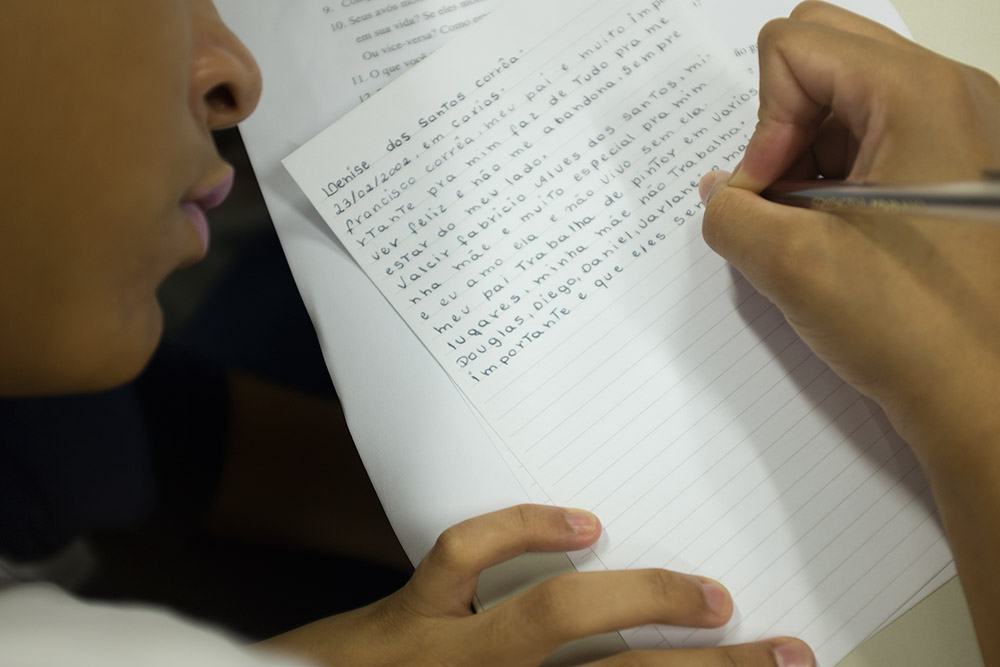 9. Co
10. Seus avós mo
em sua vida? Se eles mo
Ou vice-versa? Como e
11. O que você
12.
ão g
Denise dos Santos corrêa
23/02/2002, em caxias.
francisco corrêa, meu pai e muito imp
rTante pra mim faz de Tudo pra me
ver feliz e não me abandona. Sempre
esTar do meu lado.
Valcir fabricio Alves dos santos, mi-
nha mãe e muito especial pra mim
e eu amo ela e não vivo sem ela.
meu pai Trabalha de pinTor em varios
lugares, minha mãe não Trabalha.
Douglas, Diego, Daniel, darlane o mai
imporTanTe e que eles se